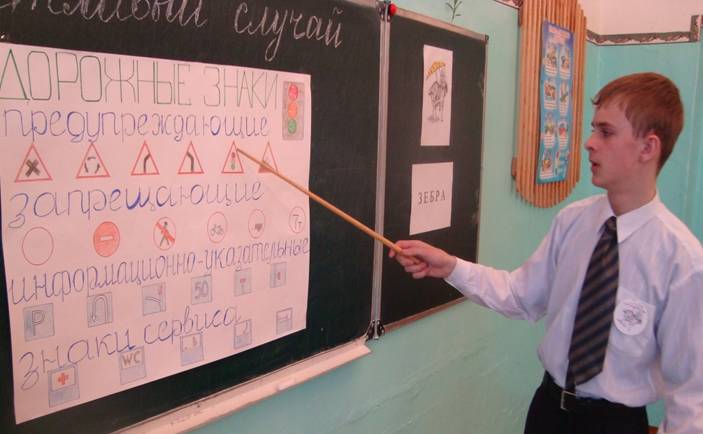 случай
ДОРОЖНЫЕ ЗНАКИ
предупреждающие
запрещающие
7т
информационно-указательные
P
50
знаки сервиса
WC
ЗЕБРА